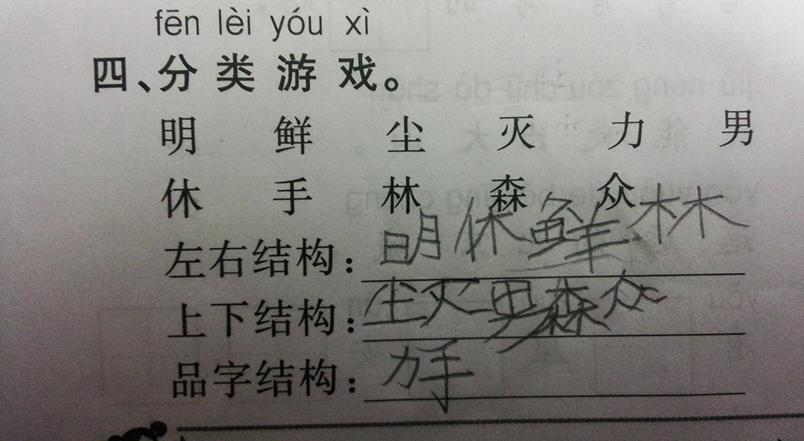 fēn lèi yóu xì
四、分类游戏。
明 鲜 尘 灭 力 男
休 手 林 森 众
左右结构：明休鲜林
上下结构：尘灭男森众
品字结构：力手